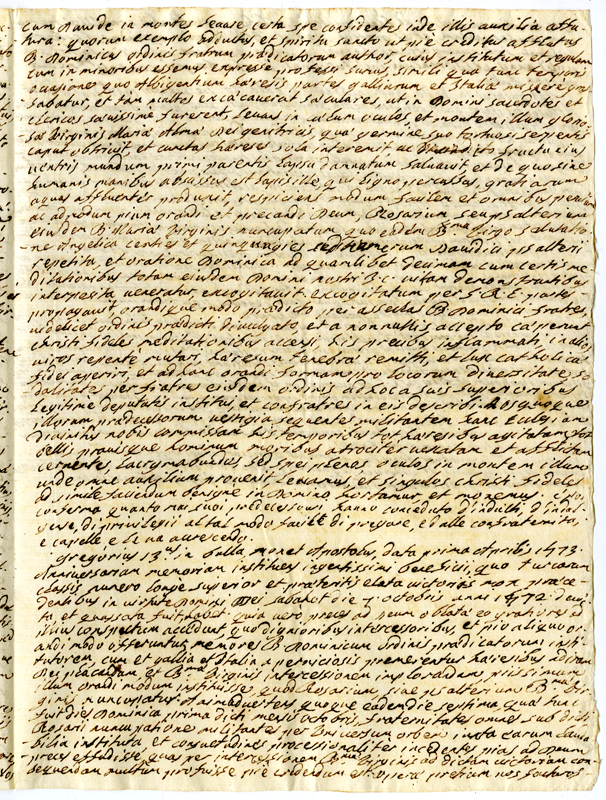 cum Davide in montes levare, certa spe confidente inde illis auxilia affu
tura: quorum exemplo adductus, et spiritu sancto ut pie creditur afflatus
B. Dominicus ordinis fratrum prædicatorum author, cuius institutum et regulam
cum in minoribus essemus expresse professi sumus, simili qua tunc temporis
occasione quo Albigentium hæresis partes Galliarum et Italiæ misere gras
sabatur, et tam multos excæcaverat sæculares, ut in Domini sacerdotes et
clericos sævissime furerent, levans in cælum oculos et montem illum glorio
sæ Virginis Mariæ Almæ Dei genitricis, quæ germine suo tortuosi serpentis
caput obtrivit, et cunctas hæreses sola interemit ac fructu eius
ventris mundum primi parentis lapsu damnatum salvavit, et de qua sine
humanis manibus abscissus est lapis ille qui ligno percussus, gratiarum
aquas affluentes produxit, respiciens modum facilem et omnibus pervium
ac admodum pium orandi et precandi Deum, Rosarium seu psalterium
eiusdem B. Mariæ Virginis nuncupatum quo eadem B.ma Virgo salutatio
ne Angelica centies et quinquagies ad numerum Davidici psalterii
repetita, et oratione Dominica ad quamlibet decimam cum certis me
ditationibus totam eiusdem Domini nostri vitam demonstrantibus
interposita veneratur, excogitavit, excogitatum per S. R. E. partes
propagavit, orandique modo prædicto per asseclas B. Dominici fratres,
videlicet ordinis prædicti divulgato, et a nonnullis accepto cæperunt
christi fideles meditationibus accensi, his precibus inflammati, in alios
viros repente mutari, hæresum tenebræ remitti, et lux catholicæ
fidei aperiri, et ad hanc orandi formam pro locorum diversitate so
dalitates per fratres eiusdem ordinis ad hoc a suis superioribus
legitime deputatis institui, et confratres in eis describi. Nos quoque
illorum prædecessorum vestigia sequentes militantem hanc Ecclesiam
Divinitus nobis commissam his temporibus tot hæresibus agitatam, tot
bellis pravisque hominum moribus atrociter vexatam et afflictam
cernentes, lacrymabundos, sed spei plenos oculos in montem illum
unde omne auxilium provenit levamus, et singulos christi fideles
ad simile faciendum benigne in Domino hortamur et monemus.
conferma quanto mai suoi predecessori hanno conceduto d'indulti, d'indul
genze, di privilegii al tal modo facile di pregare, ed alle confraternita,
e capelle
Gregorius 13.us in bulla monet Apostolus, data prima Aprilis 1573.
Anniversariam memoriam instituens ingentissimi beneficii, quo turcarum
classis numero longe superior et præteritis elata victoriis non præce
dentibus in virtute Domini Dei sabaoth die 7 octobris anni 1572 devic
ta, et quassata fuit habet. quia vero preces ad Deum oblatæ eo gratiores ad
illius conspectum accedunt, quo dignioribus intercessoribus, et pio aliquo or
andi modo offeruntur, memores B. Dominicum ordinis prædicatorum insti
tutorem, cum et Gallia et Italia a perniciosis premerentur hæresibus ad iram
Dei placandam et B.mæ Virginis intercessionem implorandam piissimum
illum orandi modum instituisse, quod Rosarium, sive psalterium B.mæ Vir
ginis nuncupatur. Animadvertens, quoque eadem die septima, quæ tunc
fuit dies Dominica prima dicti mensis octobris, fraternitates omnes sub dicti
Rosarii nuncupatione militantes per Universum orbem iuxta earum lauda
bilia instituta et consuetudines processionaliter incedentes pias ad Deum
preces effudisse, quas per intercessionem B.mæ Virginis ad dictam victoriam con
sequendam multum profuisse pie credendum est. Operæ pretium nos facturos